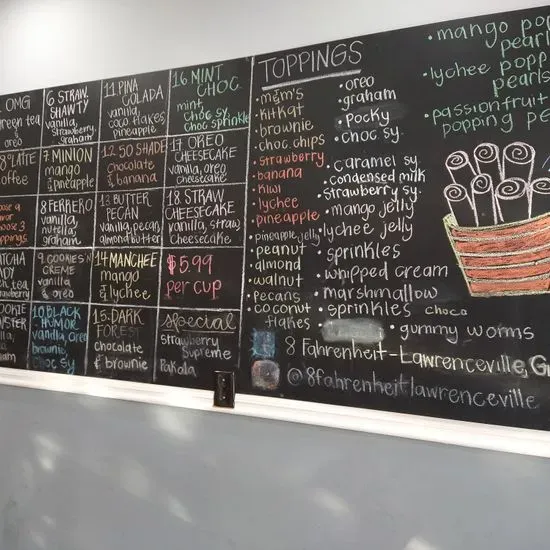 OMG
green tea
&
oreo
6 STRAW.
SHAWTY
vanilla,
strawberry,
graham
11 PINA
COLADA
vanilla,
coco flakes,
pineapple
16 MINT
CHOC.
mint,
choc sy,
choc sprinkle
LATTE
coffee
7 MINION
mango
& pineapple
12 50 SHADE
chocolate
& banana
17 OREO
CHEESECAKE
vanilla, oreo
cheesecake
8 FERRERO
vanilla,
nutella,
graham
13 BUTTER
PECAN
vanilla, pecan,
almond butter
18. STRAW
CHEESECAKE
vanilla, straw
cheesecake
9. COOKIES N'
CREME
vanilla
& oreo
14 MANCHEE
mango
& lychee
$5.99
per cup
10 BLACK
HUMOR
vanilla, oreo
brownie
choc sy
15. DARK
FOREST
chocolate
& brownie
special
strawberry
Supreme
Pakola
TOPPINGS
• m&m's
• kitkat
• brownie
• choc. chips
• strawberry
• banana
• kiwi
• lychee
• pineapple
• pineapple jelly
• peanut
• almond
• walnut
• pecans
• coconut
flakes
• oreo
• graham
• pocky
• choc sy.
• caramel sy.
• condensed milk
• strawberry sy.
• mango jelly
• lychee jelly
• sprinkles
• whipped cream
• marshmallow
• sprinkles choco
• gummy worms
• mango pop
pearl
• lychee popp
pearls
• passionfruit
popping pe
8 Fahrenheit-Lawrenceville, G
@8fahrenheitlawrenceville